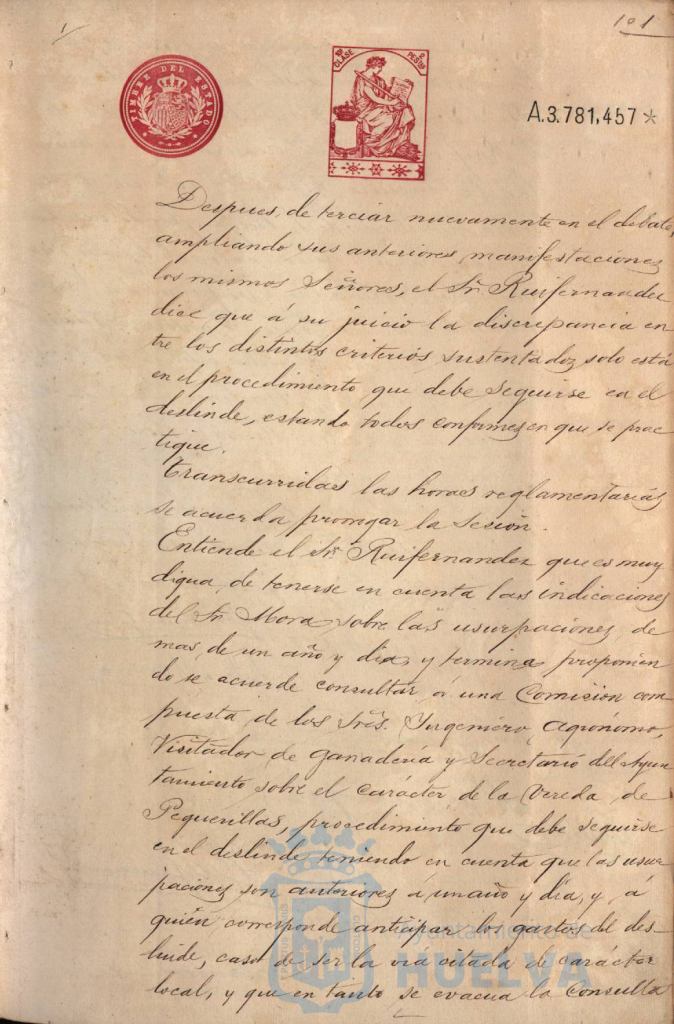 101
TIMBRE DEL ESTADO
10ª CLASE
2 PESETAS
A.3.781,457 *
Despues, de terciar nuevamente en el debate,
ampliando sus anteriores, manifestaciones
los mismos Señores, el Sr. Ruifernandez
dice que á su juicio la discrepancia en
tre los distintos criterios sustentados solo está
en el procedimiento que debe seguirse en el
deslinde, estando todos conformes en que se prac
tique.
Transcurridas las horas reglamentarias
se acuerda prorrogar la Sesión.
Entiende el Sr. Ruifernandez que es muy
digna, de tenerse en cuenta las indicaciones
del Sr. Mora, sobre las usurpaciones, de
mas, de un año y dia, y termina proponien
do se acuerde consultar á una Comision com
puesta, de los Sres. Ingeniero, Agronómo,
Visitador de Ganadería y Secretario del Ayun
tamiento sobre el carácter, de la Vereda, de
Pequerillas, procedimiento que debe seguirse
en el deslinde, teniendo en cuenta que las usur
paciones son anteriores á un año y dia, y, á
quién corresponde anticipar los gastos del des-
linde, caso de ser la vía citada de carácter
local, y que en tanto se evacua la Consulta
Ayuntamiento de
HUELVA